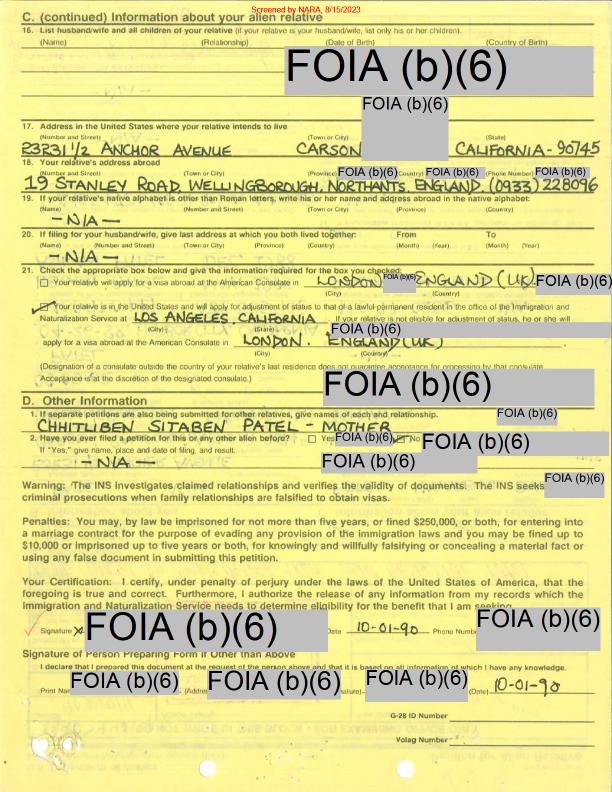 Screened by NARA, 8/15/2023
C. (continued) Information about your alien relative
16. List husband/wife and all children of your relative (if your relative is your husband/wife, list only his or her children).
(Name) (Relationship) (Date of Birth) (Country of Birth)
FOIA (b)(6)
FOIA (b)(6)
17. Address in the United States where your relative intends to live
(Number and Street) (Town or City) (State)
23231 1/2 ANCHOR AVENUE CARSON CALIFORNIA - 90745
18. Your relative's address abroad
(Number and Street) (Town or City) (Province) FOIA (b)(6) Country) FOIA (b)(6) (Phone Number) FOIA (b)(6)
19 STANLEY ROAD, WELLINGBOROUGH, NORTHANTS, ENGLAND. (0933) 228096
19. If your relative's native alphabet is other than Roman letters, write his or her name and address abroad in the native alphabet:
(Name) (Number and Street) (Town or City) (Province) (Country)
— N/A —
20. If filing for your husband/wife, give last address at which you both lived together: From To
(Name) (Number and Street) (Town or City) (Province) (Country) (Month) (Year) (Month) (Year)
— N/A —
21. Check the appropriate box below and give the information required for the box you checked:
Your relative will apply for a visa abroad at the American Consulate in LONDON FOIA (b)(6) ENGLAND (UK) FOIA (b)(6)
(City) (Country)
Your relative is in the United States and will apply for adjustment of status to that of a lawful permanent resident in the office of the Immigration and
Naturalization Service at LOS ANGELES, CALIFORNIA. If your relative is not eligible for adjustment of status, he or she will
(City) (State) FOIA (b)(6)
apply for a visa abroad at the American Consulate in LONDON. ENGLAND (UK)
(City) (Country)
(Designation of a consulate outside the country of your relative's last residence does not guarantee acceptance for processing by that consulate.
Acceptance is at the discretion of the designated consulate.)
FOIA (b)(6)
D. Other Information
1. If separate petitions are also being submitted for other relatives, give names of each and relationship. FOIA (b)(6)
CHHITLIBEN SITABEN PATEL - MOTHER
2. Have you ever filed a petition for this or any other alien before? Yes FOIA (b)(6) No FOIA (b)(6)
If "Yes," give name, place and date of filing, and result. FOIA (b)(6)
— N/A —
Warning: The INS investigates claimed relationships and verifies the validity of documents. The INS seeks FOIA (b)(6)
criminal prosecutions when family relationships are falsified to obtain visas.
Penalties: You may, by law be imprisoned for not more than five years, or fined $250,000, or both, for entering into
a marriage contract for the purpose of evading any provision of the immigration laws and you may be fined up to
$10,000 or imprisoned up to five years or both, for knowingly and willfully falsifying or concealing a material fact or
using any false document in submitting this petition.
Your Certification: I certify, under penalty of perjury under the laws of the United States of America, that the
foregoing is true and correct. Furthermore, I authorize the release of any information from my records which the
Immigration and Naturalization Service needs to determine eligibility for the benefit that I am seeking.
Signature X FOIA (b)(6) Date 10-01-90 Phone Number FOIA (b)(6)
Signature of Person Preparing Form if Other than Above
I declare that I prepared this document at the request of the person above and that it is based on all information of which I have any knowledge.
Print Na FOIA (b)(6) (Addre FOIA (b)(6) nature) FOIA (b)(6) (Date) 10-01-90
G-28 ID Number
Volag Number